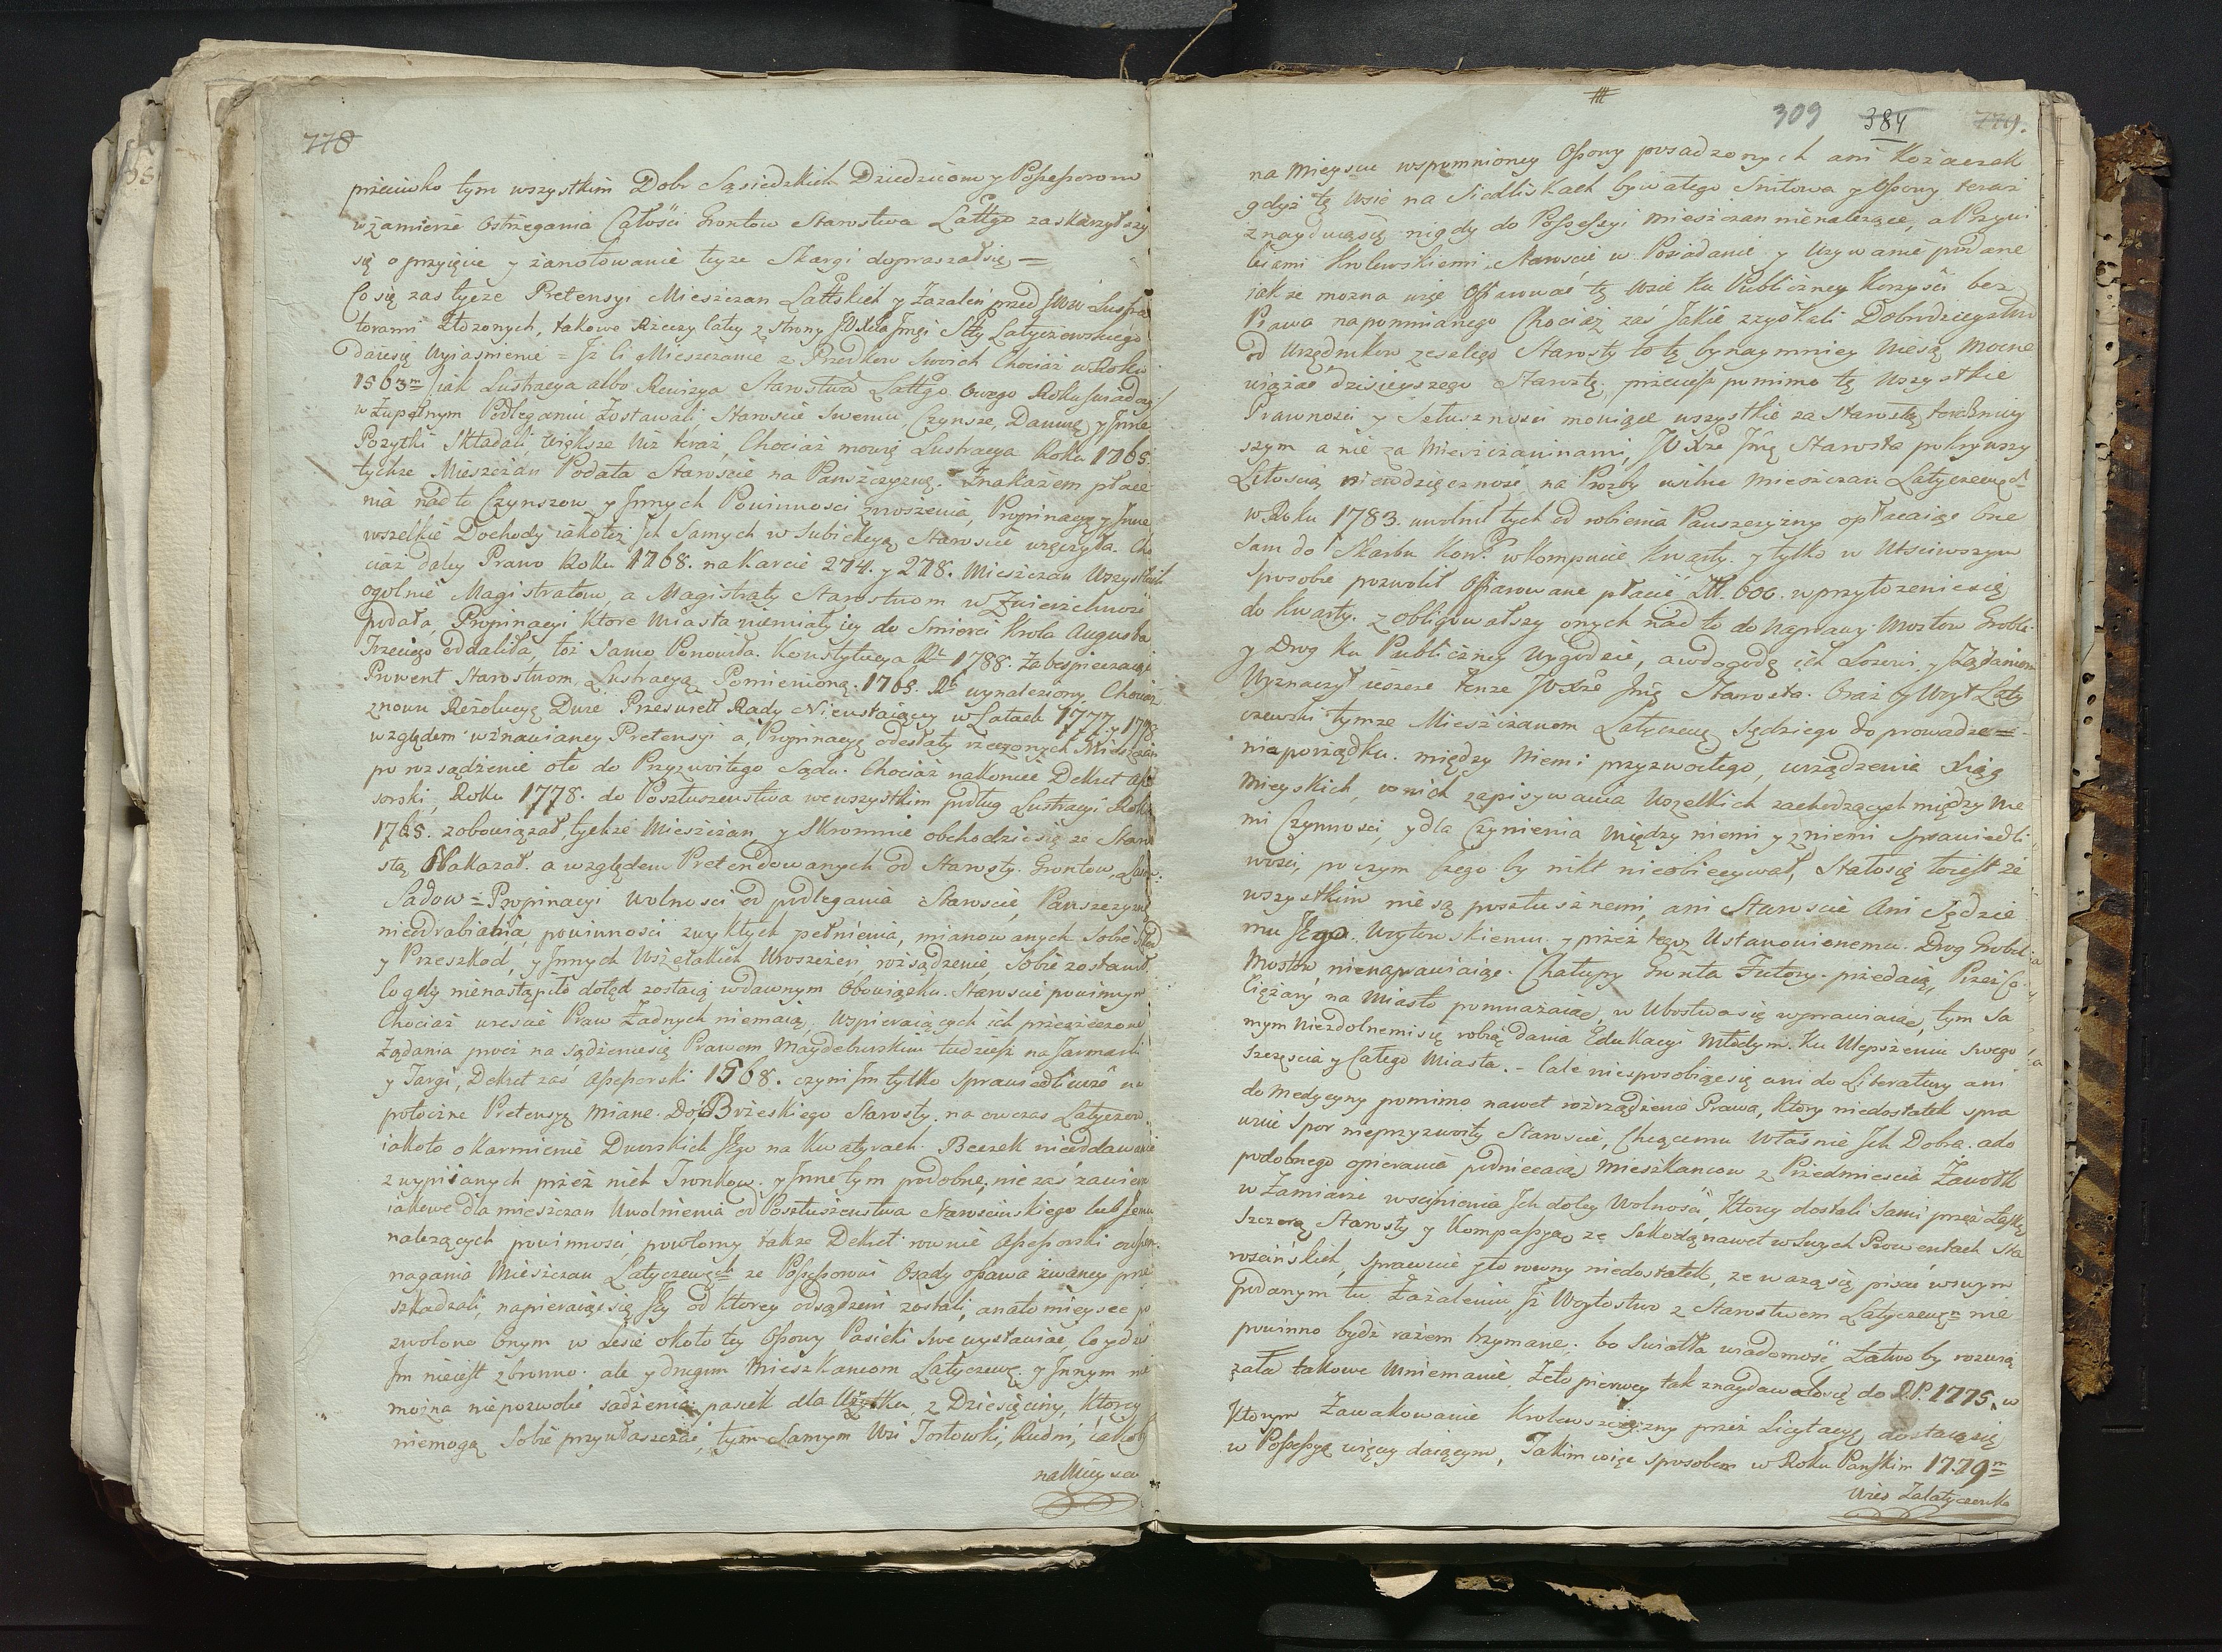 778
przeciwko tym wszystkim Dobr Sąsiedzkich Dziedzicom y Possessorom
w zamierze Ostrzegania Całości Grontow Starostwa Lattgo zaskarzył szy
się o przyięcie y zanotowanie teyze Skargi dopraszał się =
Co się zas tycze Pretensyi Mieszczan Lattskich y Zazaleń przed JWW Lustra
torami Złozonych, takowe Rzeczy całey z strony JO Xcia Jmci Stty Latyczewskiego
daie się Wyiasnienie = Jz li Mieszczanie z Przodkow Swoich Chociaz w Roku
1563m /iak Lustracya albo Rewizya Starostwa Lattgo Owego Roku swiadczy/
w Zupełnym Podleganiu Zostawali Staroscie Swemu, Czynsze, Daninę y Inne
Pozytki Składali większe niz teraz, Chociaz mowię Lustracya Roku 1765.
tychze Mieszczan Podała Staroscie na Panszczyznę. Inakazem płace
nia nad to Czynszow y Innych Powinnosci znoszenia, Propinacyą y Inne
wszelkie Dochody iakotez Ich Samych w Subiekcyą Staroscie wręczyła. Cho
ciaz daley Prawo Roku 1768. na Karcie 274. y 278. Mieszczan Wszystkich
ogolnie Magistratow, a Magistraty Starostwom w Zwierzchnosc
podała, Propinacyi Ktore Miasta niemiały iey do Smierci Krola Augusta
Trzeciego oddaliła, toz Samo Ponowiła Konstytucya Rt 1788. Zabespieczaiąc
Prowent Starostwom, Lustracyą Pomienioną 1765. Rt wynaleziony. Chociaz
znowu Rezolucye Dwie Przeswiett Rady Nieustaiącey w Latach 1777. y 1778
względem wznawianey Pretensyi a Propinacyę odesłały rzeczonych Mieszczan
po rozsądzenie oto do Przyzwoitego Sądu. Chociaz nakoniec Dekret Asse
sorski, Roku 1778. do Posłuszenstwa we wszystkim podług Lustracyi Roku
1765. zobowiązał, tychze Mieszczan, y Skromnie obchodzić się ze Staro
stą Nakazał. a względem Pretendowanych od Starosty Grontow, Lasow.
Sadow = Propinacyi wolnosci od podlegania Staroscie, Panszczyzny
nieodrabiania, powinnosci zwykłych pełnienia, mianowanych sobie
y Przeszkod, y Innych Wszelakich Uroszczeń, rozsądzenie Sobie zostawił.
Co gdy nienastąpiło dotąd zostaią w dawnym Obowiązku Staroscie powinnym
Chociaz wreście Praw Zadnych niemaią, Wspieraiących ich przerzeczone
Ządania procz na sądzenie się Prawem Maydeburskim tudziesz na Jarmarki
y Targi, Dekret zas Assessorski 1568. czyni Im tylko Sprawiedliwosc na
potoczne Pretensye miane. Do Brzeskiego Starosty na owczas Latyczew.
iakoto o Karmienie Dworskich Jego na Kwatyrach. Beczek nieoddawanie
z wypisanych przez nich Tronkow. y Inne tym podobne, nie zas zawiera
iakowe dla mieszczan Uwolnienia od Posłuszenstwa Starosciuskiego lub Jemu
nalezących powinnosci, powtorny takze Dekret rownie Assessorski
nagania Mieszczan Latyczewsch ze Possessorowi Osady Ossawa zwaney prze
szkadzali, napieraiąc się Jey od ktorey odsądzeni zostali, anato mieysce po
zwolono Onym w Lesie około tey Ossowy Pasieki Swe wystawiać, Co y dziś
Im nieiest zbronno. ale y drugim Mieszkancom Latyczewę. y Innym nie
mozna niepozwolić sadzenia pasiek dla Uzytku z Dziesięciny, Ktorey
niemogą Sobie przywłaszczać, tym Samym Wsi Torłowki, Rudni, iakoby
na Mieyscu
309 384 779.
na mieyscu wspomnioney Ossowy posadzonych ani Kozaczek
gdyz tę Wsie na Siedliskach bywałego Snitowa y Ossowy teraz
znayduiąsię nigdy do Possessyi mieszczan nienalezące, a Przywi
leiami Krolewskiemi Staroscie w Posiadanie y Uzywanie podane
iak ze mozna więc Offiarować tę Wsie Ku Publiczney Korzysci bez
Prawa napomnianego Chociaz zas Jakie zzyskali Dobrodzieystwo
od Urzędnikow zeszłego Starosty to tę bynaymniey niesą mocne
wiązać dzisieyszego Starostę, przeciesz pomimo tę Wszystkie
Prawnosci y Słusznosci mowiące wszystkie za Starostą terazniey
szym a nie za Mieszczaninami, JO Xze Jmć Starosta pokrywszy
Litoscią niewdzięcznosc na Prozby usilne Mieszczan Latyczewsch
w Roku 1783. uwolnił tych od robienia Panszczyzny opłacaiąc One
sam do Skarbu Kor: w Kompucie Kwarty. y tylko w Utsciwszym
Sposobie pozwolił Offiarowane płacić Zł. 600. w przyłozenie się
do Kwarty. z obligowałszy onych nad to do Naprawy Mostow Grobli
y Drog Ku Publiczney wygodzie, a wdogodę ich Losowi, y Ządaniom
Wyznaczył ieszcze tenze JO Xze Jmć Starosta. Oraz y Woyt Laty
czewski tymze Mieszczanom Latyczewę Sędziego do prowadze=
nia porządku. między Niemi przyzwoitego, urządzenia Xiąg
Mieyskich, w nich zapisywania Wszelkich zachodzących między Nie
mi Czynnosci, y dla Czynienia między niemi y z niemi Sprawiedli
wosci, po czym Czego by nikt nieobiecywał, Stało się toiest ze
wszystkim nie są posłusznemi, ani Staroscie Ani Sędzie
mu Jego Woytowskiemu y przez tegoz Ustanowionemu. Drog Grobel
Mostow nienaprawiaiąc. Chałupy Gronta Futory przedaią, Przez Co
Ciężary na Miasto pomnazaiąc, w Ubostwo się wprawiaiąc, tym Sa
mym Niezdolnemi się robią dania Edukacyi Młodym. Ku Ulepszeniu Swego
Szczęscia y Całego Miasta. – Cale niesposobiąc się ani do Literatury ani
do Medycyny pomimo nawet rozrządzenie Prawa, Ktory niedostatek spra
wuie Spor nieprzyzwoity Staroscie, Chcącemu Własnie Ich Dobra. a do
podobnego opierania podniecaią Mieszkancow z Przedmiescia Zawołk
w Zamiarze wscisnienia Ich doley Wolnosci, Ktorey dostali Sami przez Łaskę
Szczerą Starosty y Kompassyą ze Szkodą nawet w Swych Prowentach Sta
roscińskich, Sprawuie y to rowny niedostatek, ze wazą się pisac w swym
podanym tu Zazaleniu Jz Woytostwo z Starostwem Latyczewsm nie
powinno bydz razem trzymane. bo Swiatła wiadomosc Łatwo by rozwią
zała takowe Mniemanie, Ze to pierwey tak znaydawało się do R.P. 1775. w
Ktorym Zawakowanie Krolewszczyzny przez Licytacyę dostaią się
w Possessyą więcey daiącym, Jakim więc Sposobem w Roku Panskim 1779m
Wies Zalatyczowka